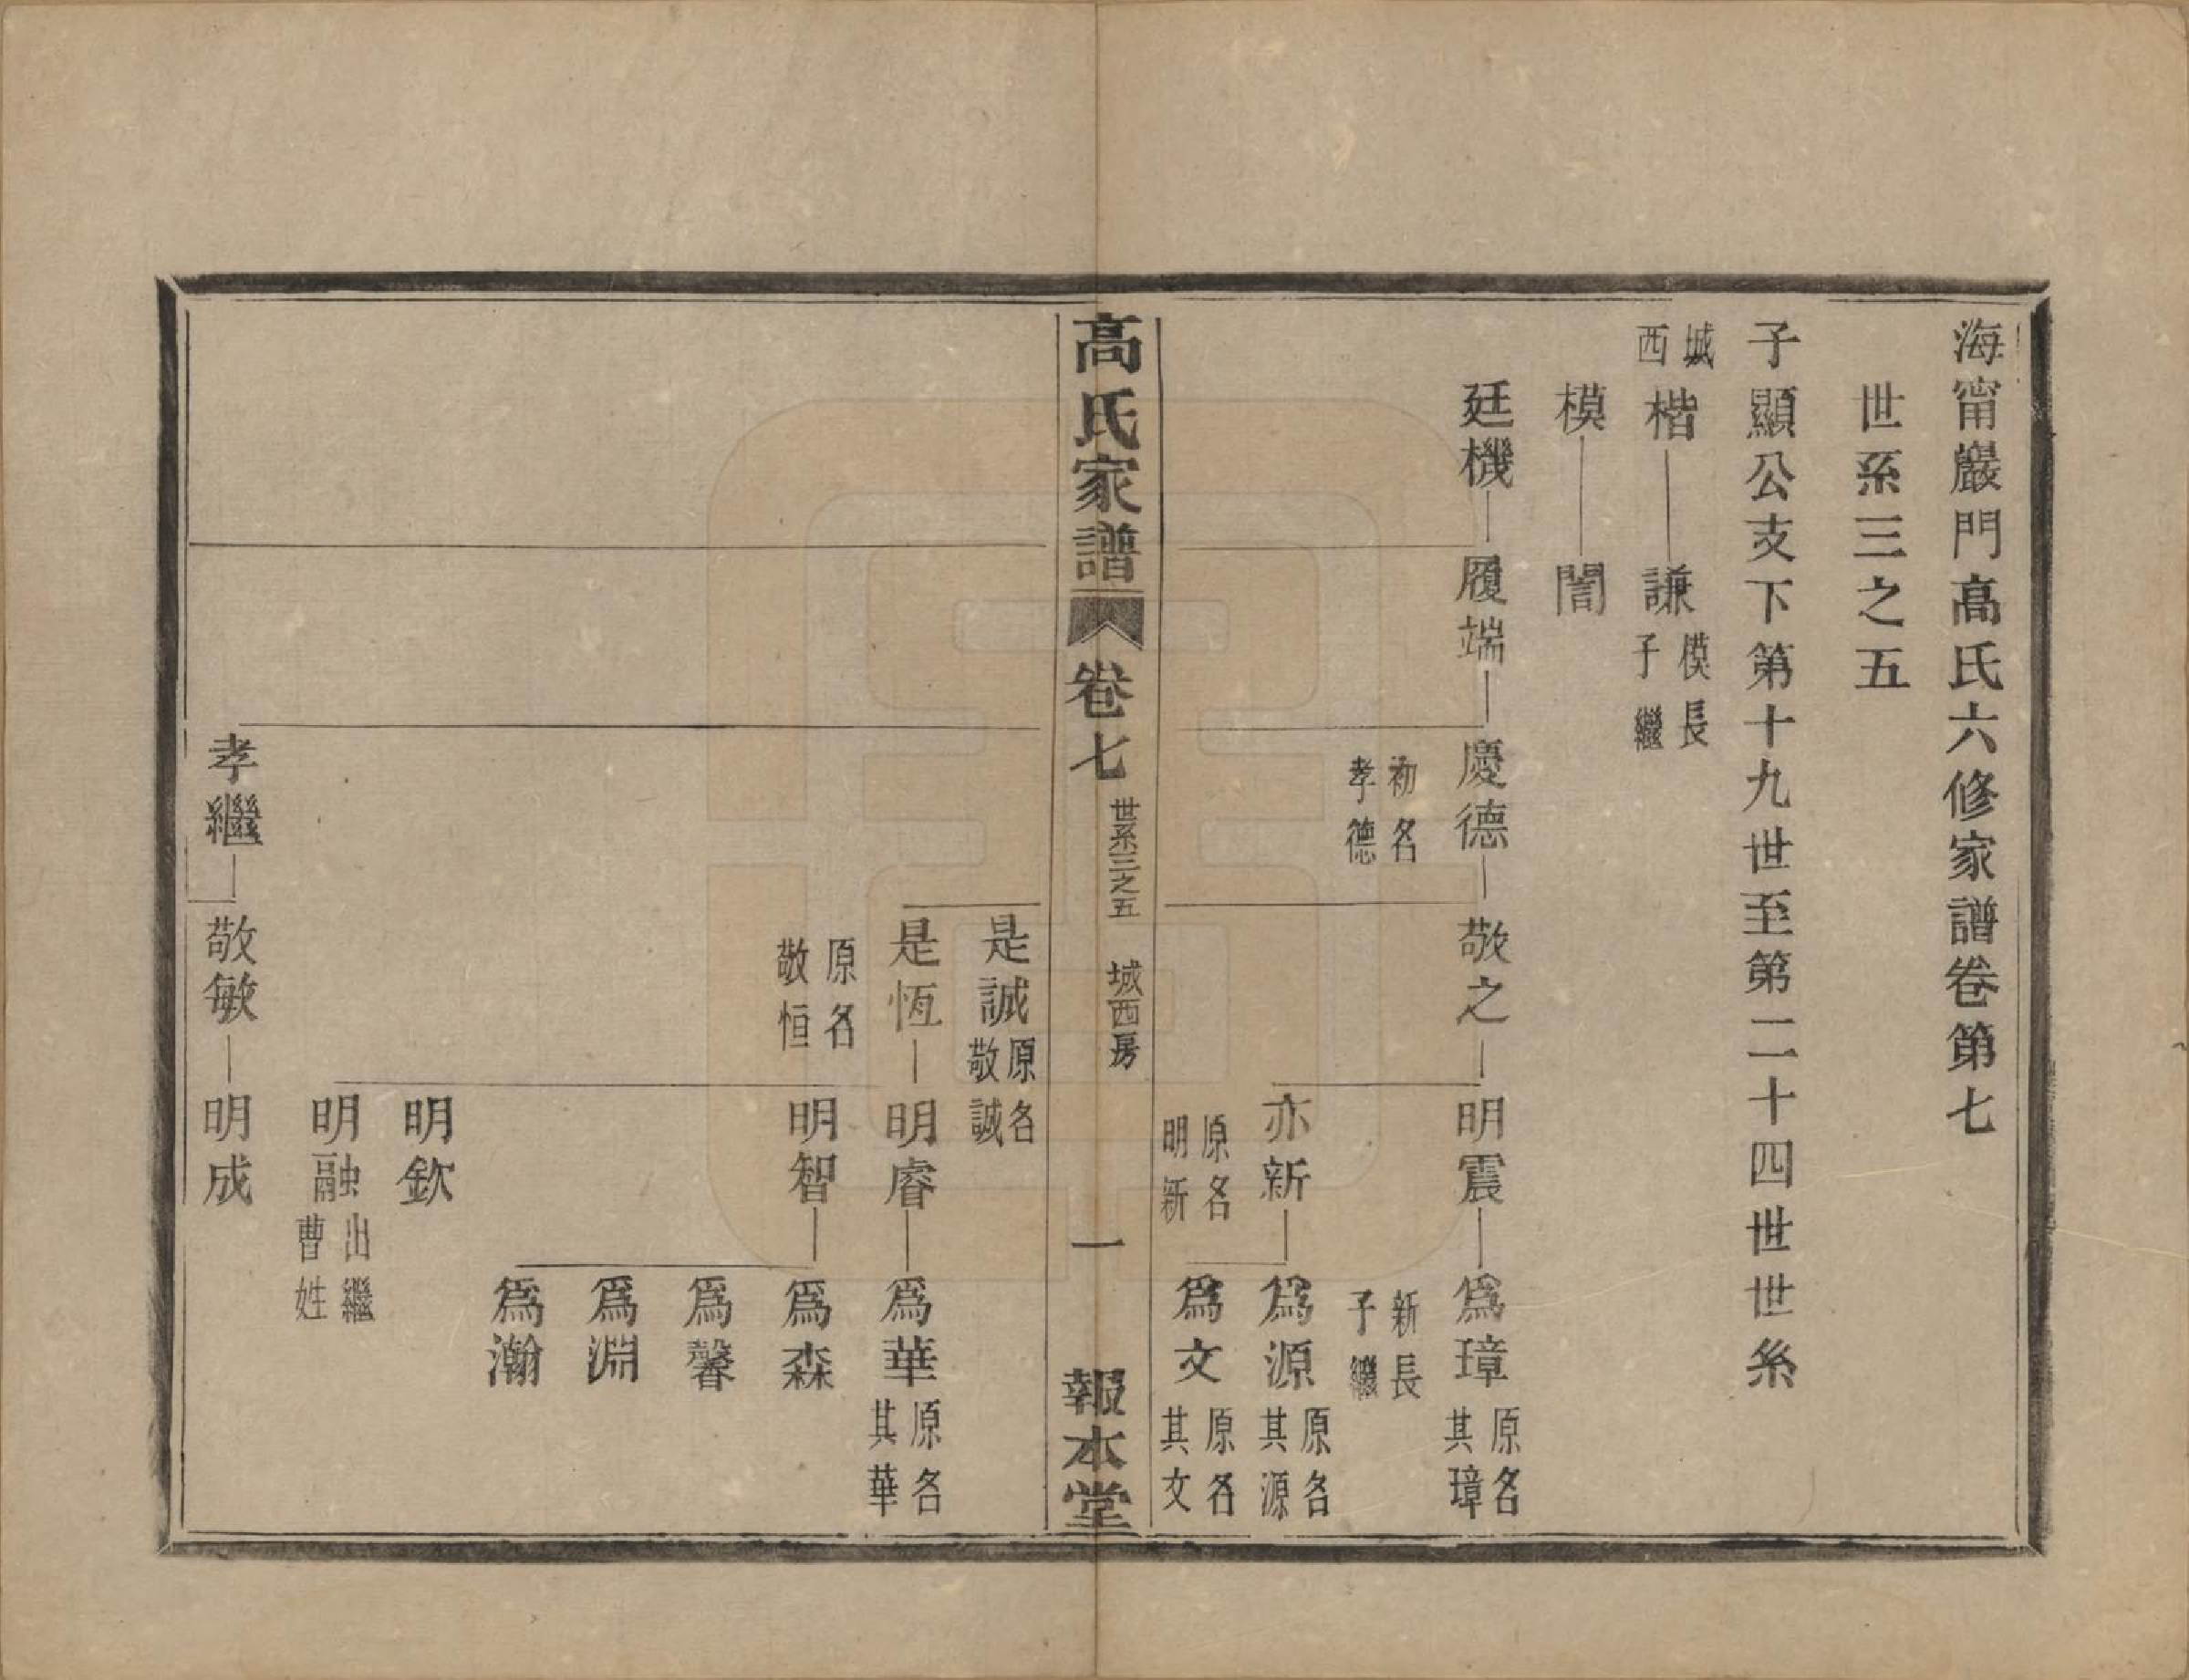 海甯巖門高氏六修家譜卷第七
世系三之五
子顯公支下第十九世至第二十四世世系
城西 楷 謙 模長子繼
模 誾
廷機 履端 慶德 敬之 明震 爲璋 原名其璋
初名孝德
新長子繼
亦新 爲源 原名其源
原名明新
爲文 原名其文
高氏家譜 卷七 世系三之五 城西房 一 報本堂
是誠 原名敬誠
是恆 明睿 爲華 原名其華
原名敬恒
明智 爲森
爲馨
爲淵
爲瀚
明欽
明融 出繼曹姓
孝繼 敬敏 明成